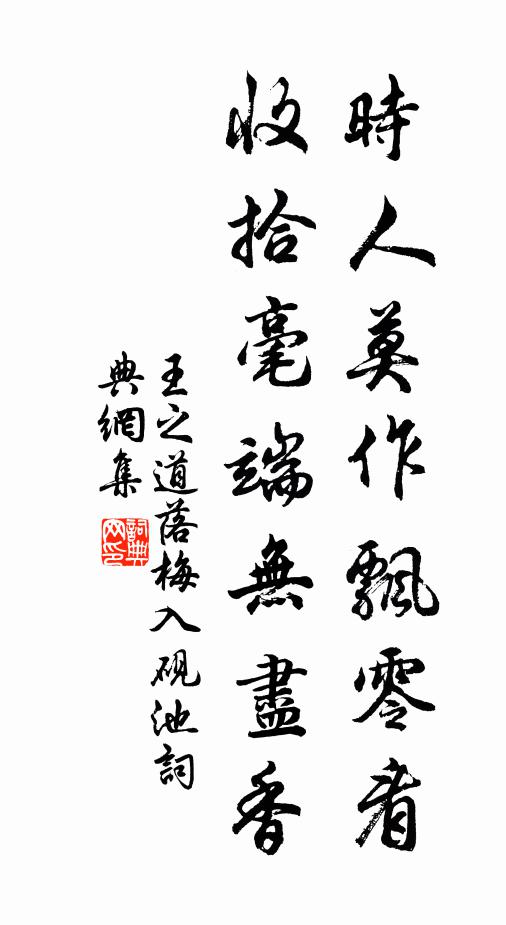 時人莫作飄零看
收拾毫端無盡香
王之道落梅入硯池詞
典網集
詞典
网印